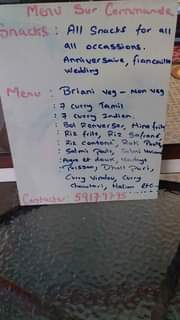 Menu Sur Commande
Snacks: All Snacks for all
all occassions.
Anniversaire, fiancailles
wedding
Menu: Briani veg - non veg
: 7 Curry Tamil
: 7 Curry Indien.
: Bol Renverser, Mine frite
: Riz frite, Riz Safrané
: Riz cantonai,
: Salmi Poule, Salmi
: Aigre et doux,
Poisson, Dhall Puri,
Curry Vindey, Curry
Chawlari, Halim etc.
Contacter 5917-9795